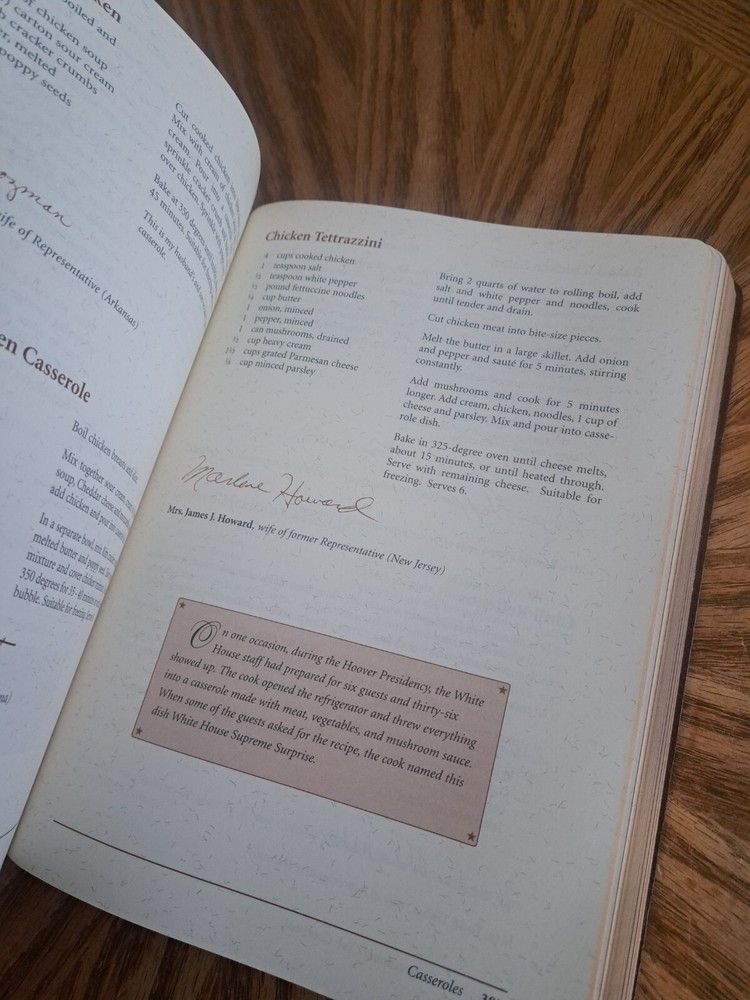 ken
oiled and
of chicken soup
carton sour cream
cracker crumbs
er, melted
poppy seeds
Cut cooked chicken
Mix with cream of
cream. Pour into a
sprinkle cracker crumbs
over chicken. Sprinkle
Bake at 350 degrees
45 minutes. Suitable for
This is my husband's
casserole.
ozman
wife of Representative (Arkansas)
en Casserole
Boil chicken breasts and
Mix together sour cream,
soup, Cheddar cheese and
add chicken and pour into
In a separate bowl, mix
melted butter and poppy seed.
mixture and cover chicken
350 degrees for 35-40 minutes
bubble. Suitable for freezing.
Chicken Tettrazzini
4 cups cooked chicken
1 teaspoon salt
½ teaspoon white pepper
½ pound fettuccine noodles
¼ cup butter
onion, minced
1 pepper, minced
1 can mushrooms, drained
½ cup heavy cream
1½ cups grated Parmesan cheese
¼ cup minced parsley
Bring 2 quarts of water to rolling boil, add
salt and white pepper and noodles, cook
until tender and drain.
Cut chicken meat into bite-size pieces.
Melt the butter in a large skillet. Add onion
and pepper and sauté for 5 minutes, stirring
constantly.
Add mushrooms and cook for 5 minutes
longer. Add cream, chicken, noodles, 1 cup of
cheese and parsley. Mix and pour into casse-
role dish.
Bake in 325-degree oven until cheese melts,
about 15 minutes, or until heated through.
Serve with remaining cheese. Suitable for
freezing. Serves 6.
Marlene Howard
Mrs. James J. Howard, wife of former Representative (New Jersey)
On one occasion, during the Hoover Presidency, the White
House staff had prepared for six guests and thirty-six
showed up. The cook opened the refrigerator and threw everything
into a casserole made with meat, vegetables, and mushroom sauce.
When some of the guests asked for the recipe, the cook named this
dish White House Supreme Surprise.
Casseroles